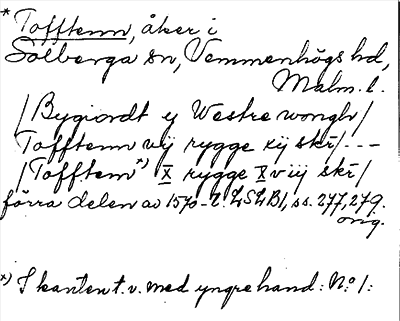 * Tofftenn, åker i
Solberga sn, Vemmenhögs hd,
Malm. l.
/Bygiordt ij Westre wongh/
Tofftenn vij rygge xij skr/---
/Tofftenn *) X rygge Xviij skr/
förra delen av 1570-t. LSLB1, ss. 277, 279.
orig.
*) I kanten t.v. med yngre hand: No 1: